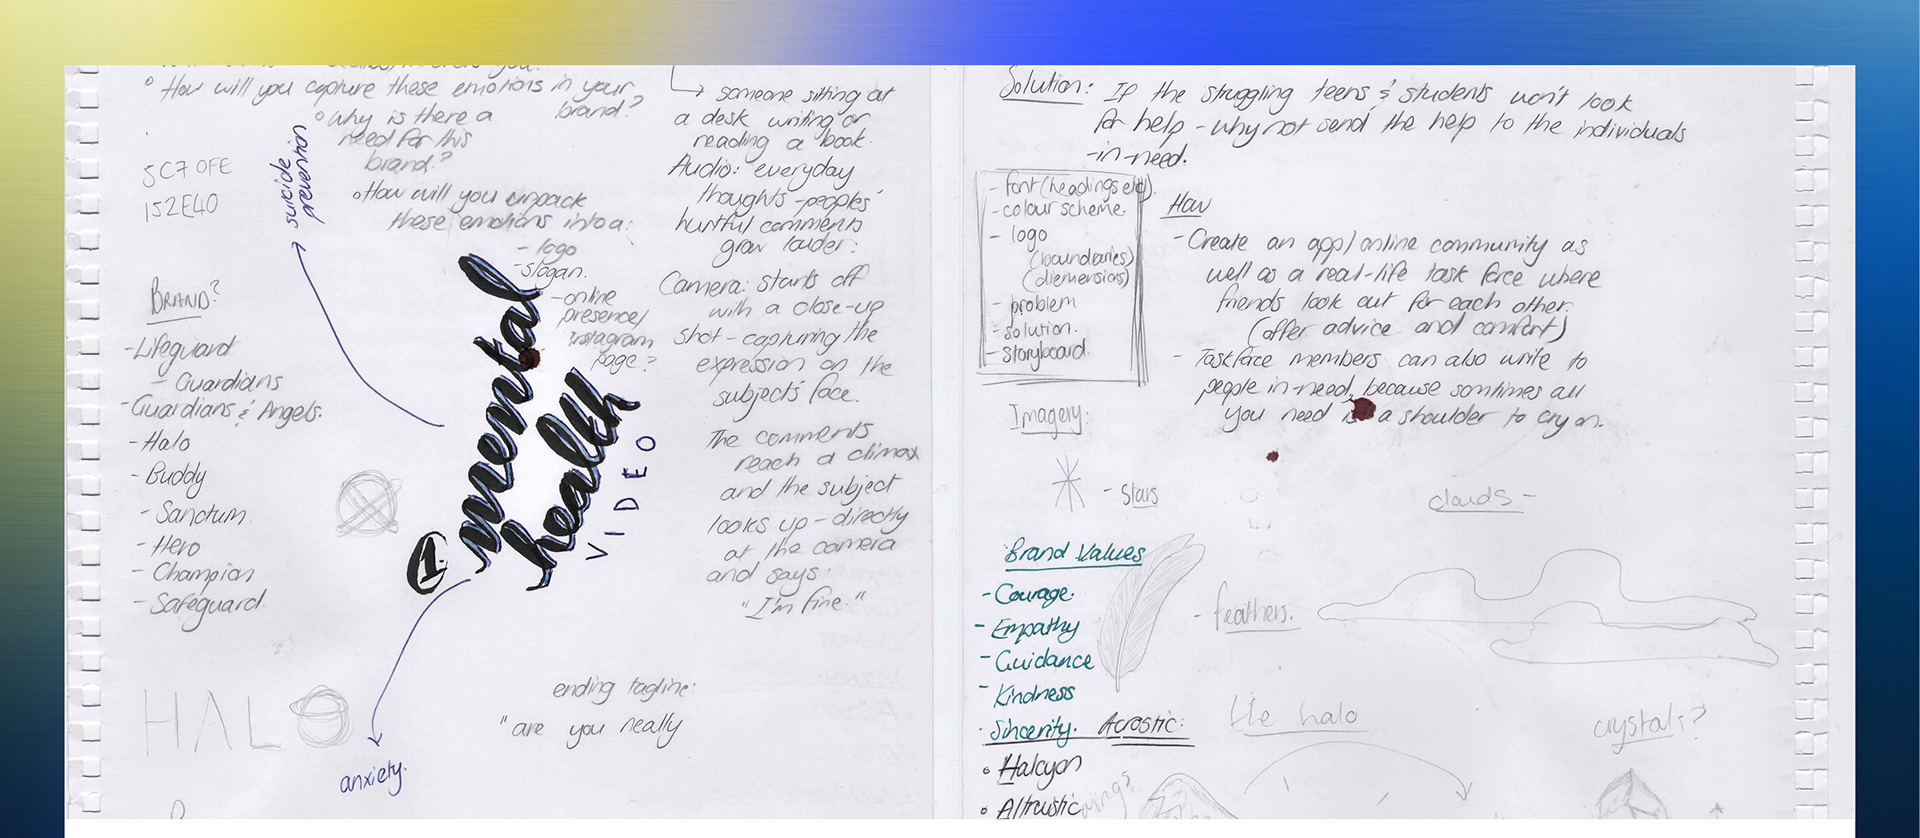 How will you capture these emotions in your
brand?
why is there a
need for this
brand?
How will you unpack
these emotions into a:
- logo
- slogan.
- online
presence/
instagram
page?
suicide
prevention
5C70FE
152E40
BRAND?
- Lifeguard
- Guardians
- Guardians & Angels.
- Halo
- Buddy
- Sanctum
- Hero
- Champion
- Safeguard.
1.
mental
health
VIDEO
HALO
anxiety.
someone sitting at
a desk writing or
reading a book.
Audio: everyday
thoughts - peoples'
hurtful comments
grow louder.
Camera: starts off
with a close-up
shot - capturing the
expression on the
subject's face.
The comments
reach a climax
and the subject
looks up - directly
at the camera
and says:
"I'm fine."
ending tagline:
"are you really
Solution: If the struggling teens & students won't look
for help - why not send the help to the individuals
-in-need.
- font (headings etc).
- colour scheme.
- logo
(boundaries)
(diemensions)
- problem
- solution.
- storyboard.
How
- Create an app/online community as
well as a real-life task force where
friends look out for each other.
(offer advice and comfort)
- Taskforce members can also write to
people in-need, because somtimes all
you need is a shoulder to cry on.
Imagery:
- Stars
clouds -
Brand Values
- Courage.
- Empathy
- Guidance
- Kindness
- Sincerity.
- feathers.
Acrostic:
Halcyon
Altruistic
the halo
crystals?
wings